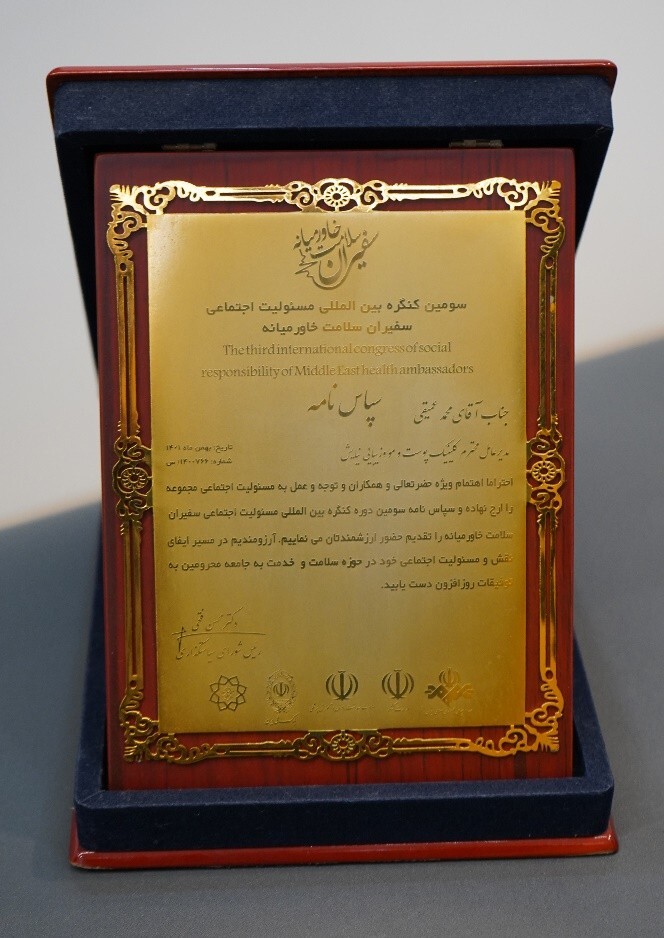 سفیران سلامت خاورمیانه
سومین کنگره بین المللی مسئولیت اجتماعی
سفیران سلامت خاورمیانه
The third international congress of social
responsibility of Middle East health ambassadors
سپاس نامه
جناب آقای محمد عمیقی
مدیرعامل محترم کلینیک پوست و مو و زیبایی نیایش
تاریخ: بهمن ماه ۱۴۰۱
شماره: ۱۴۰۰۷۶۶/س
احتراما اهتمام ویژه حضرتعالی و همکاران و توجه و عمل به مسئولیت اجتماعی مجموعه
را ارج نهاده و سپاس نامه سومین دوره کنگره بین المللی مسئولیت اجتماعی سفیران
سلامت خاورمیانه را تقدیم حضور ارزشمندتان می نماییم. آرزومندیم در مسیر ایفای
نقش و مسئولیت اجتماعی خود در حوزه سلامت و خدمت به جامعه محرومین به
توفیقات روزافزون دست یابید.
دکتر حسن فتحی
رییس شورای سیاستگذاری